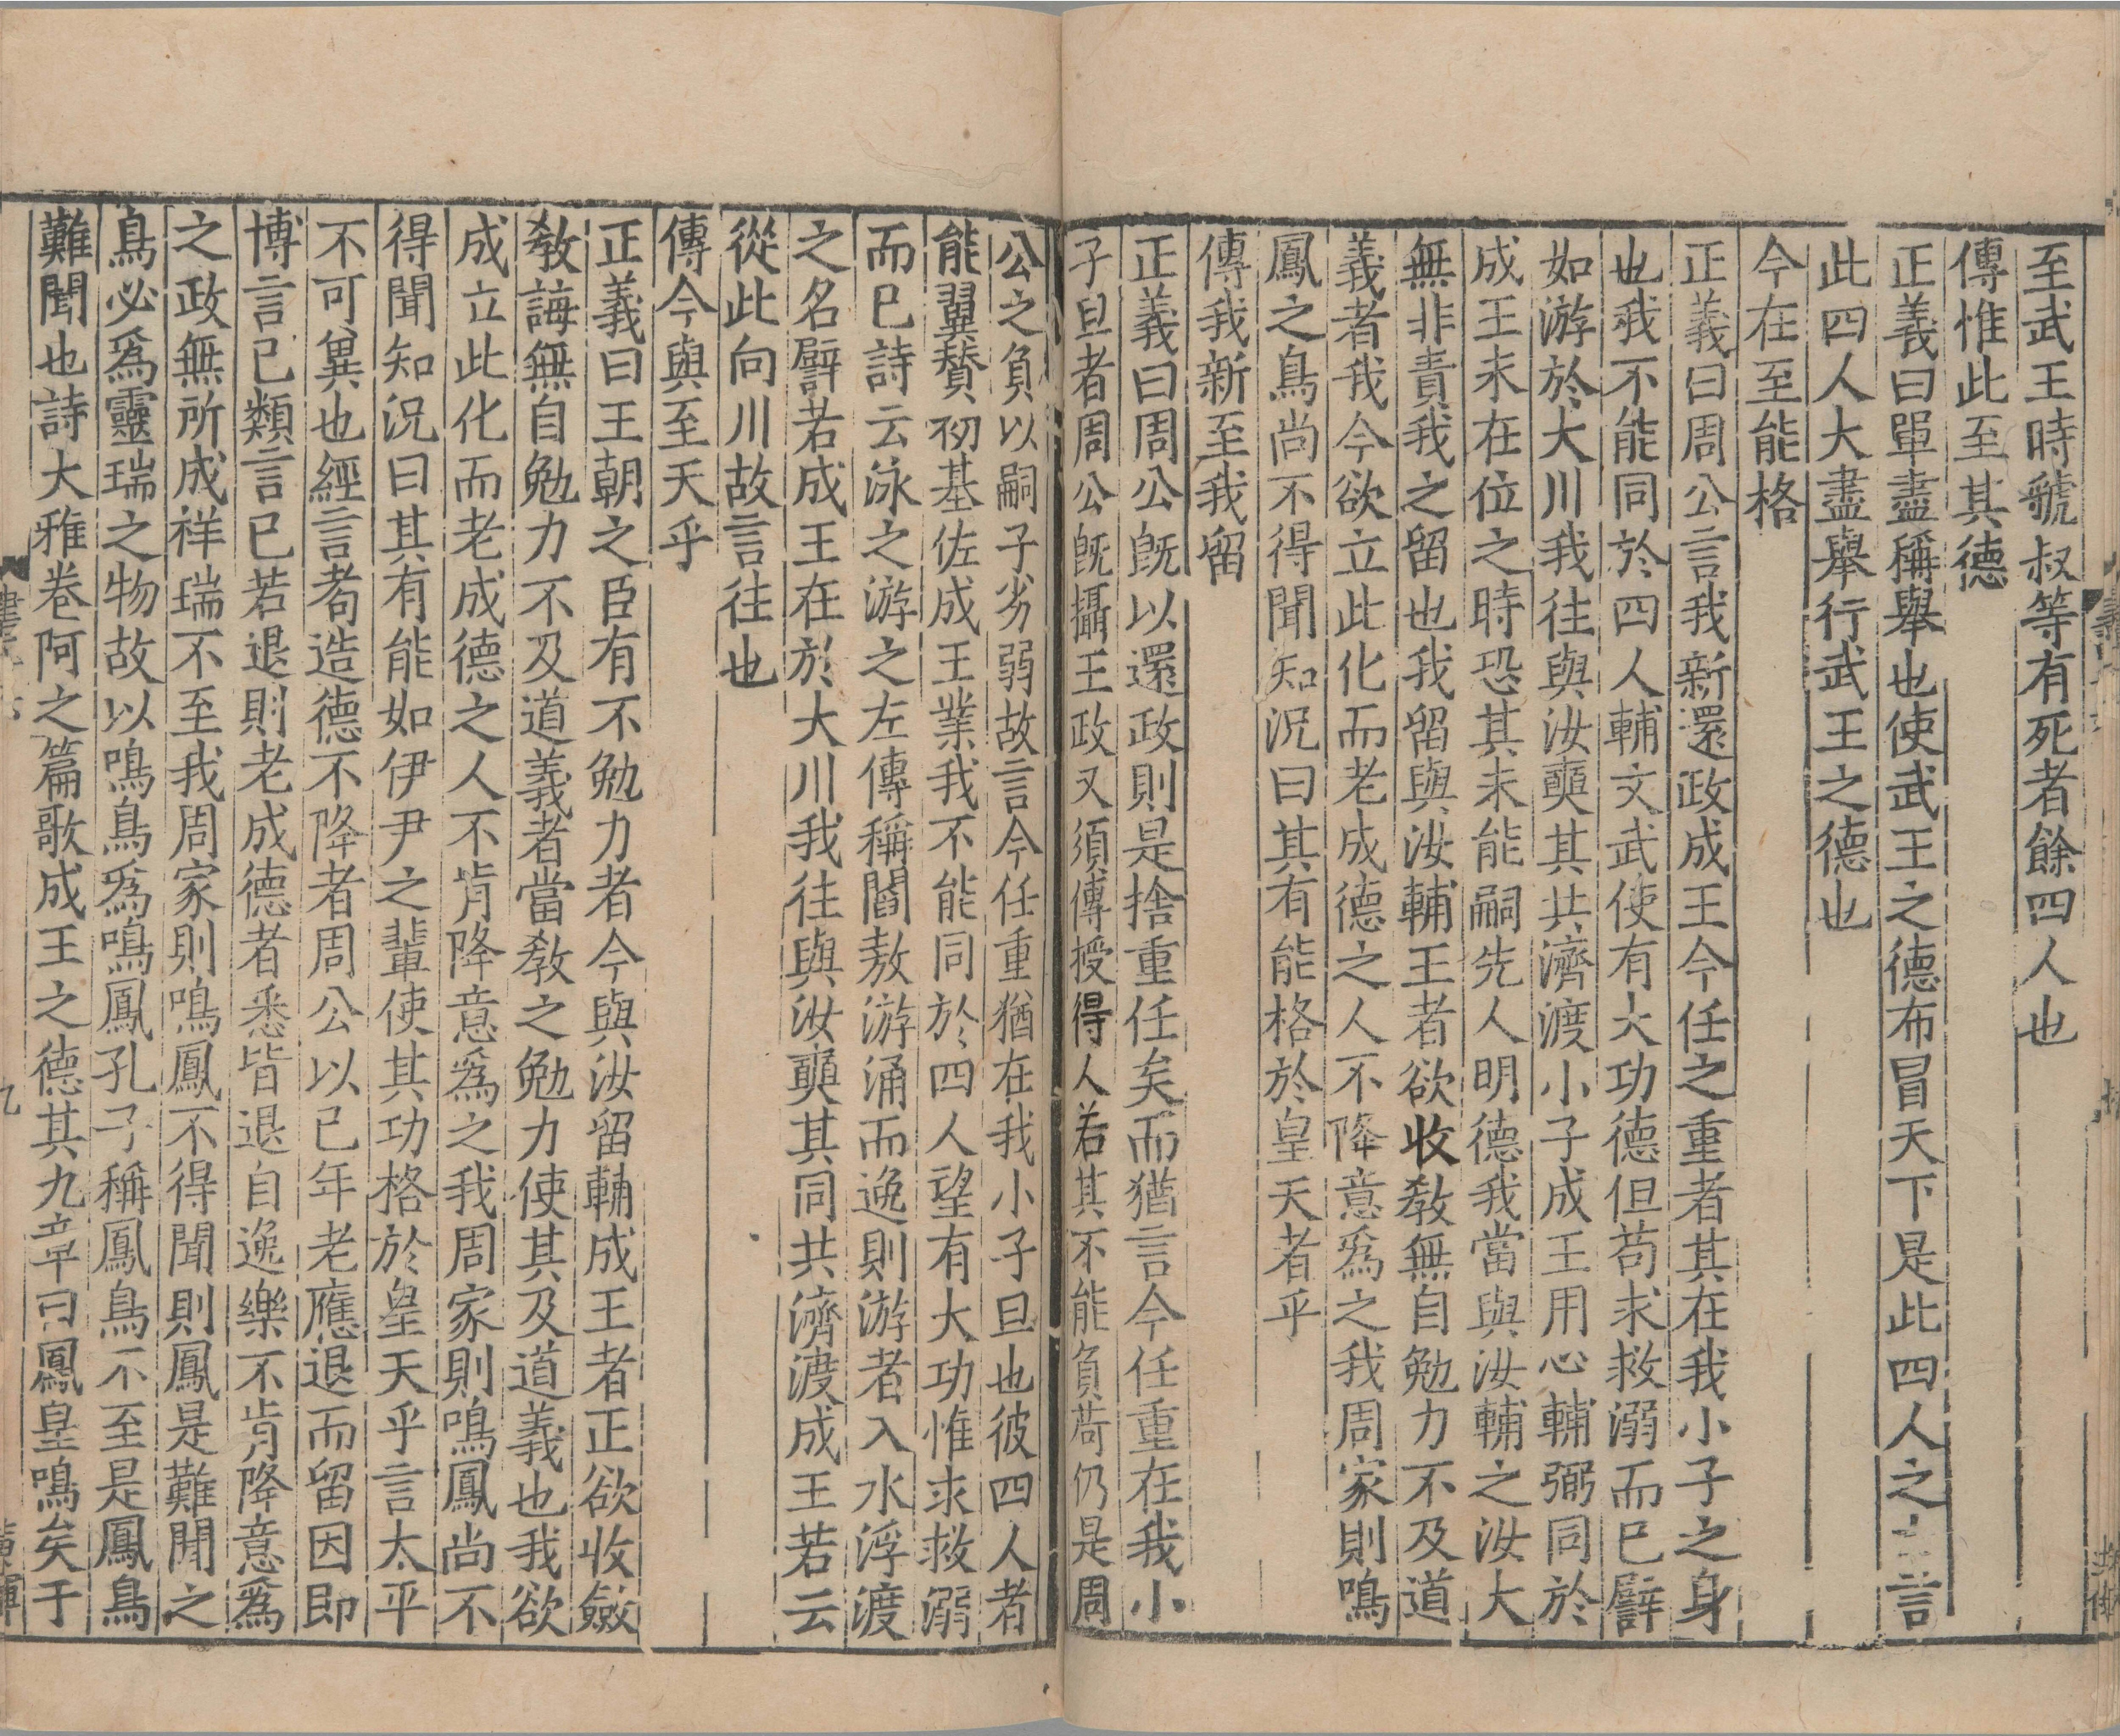 至武王時虢叔等有死者餘四人也
傳惟此至其德
正義曰單盡稱舉也使武王之德布冒天下是此四人之言
此四人大盡舉行武王之德也
今在至能格
正義曰周公言我新還政成王今任之重者其在我小子之身
也我不能同於四人輔文武使有大功德但苟求救溺而已譬
如游於大川我往與汝奭其共濟渡小子成王用心輔弼同於
成王未在位之時恐其未能嗣先人明德我當與汝輔之汝大
無非責我之留也我留與汝輔王者欲收教無自勉力不及道
義者我今欲立此化而老成德之人不降意爲之我周家則鳴
鳳之鳥尚不得聞知況曰其有能格於皇天者乎
傳我新至我留
正義曰周公既以還政則是捨重任矣而猶言今任重在我小
子旦者周公既攝王政又須傳授得人若其不能負荷仍是周
公之負以嗣子劣弱故言今任重猶在我小子旦也彼四人者
能翼贊初基佐成王業我不能同於四人望有大功惟求救溺
而已詩云泳之游之左傳稱閻敖游涌而逸則游者入水浮渡
之名譬若成王在於大川我往與汝奭其同共濟渡成王若云
從此向川故言往也
傳今與至天乎
正義曰王朝之臣有不勉力者今與汝留輔成王者正欲收斂
教誨無自勉力不及道義者當教之勉力使其及道義也我欲
成立此化而老成德之人不肯降意爲之我周家則鳴鳳尚不
得聞知況曰其有能如伊尹之輩使其功格於皇天乎言太平
不可冀也經言耇造德不降者周公以已年老應退而留因即
博言已類言已若退則老成德者悉皆退自逸樂不肯降意爲
之政無所成祥瑞不至我周家則鳴鳳不得聞則鳳是難聞之
鳥必爲靈瑞之物故以鳴鳥爲鳴鳳孔子稱鳳鳥不至是鳳鳥
難聞也詩大雅卷阿之篇歌成王之德其九章曰鳳皇鳴矣于